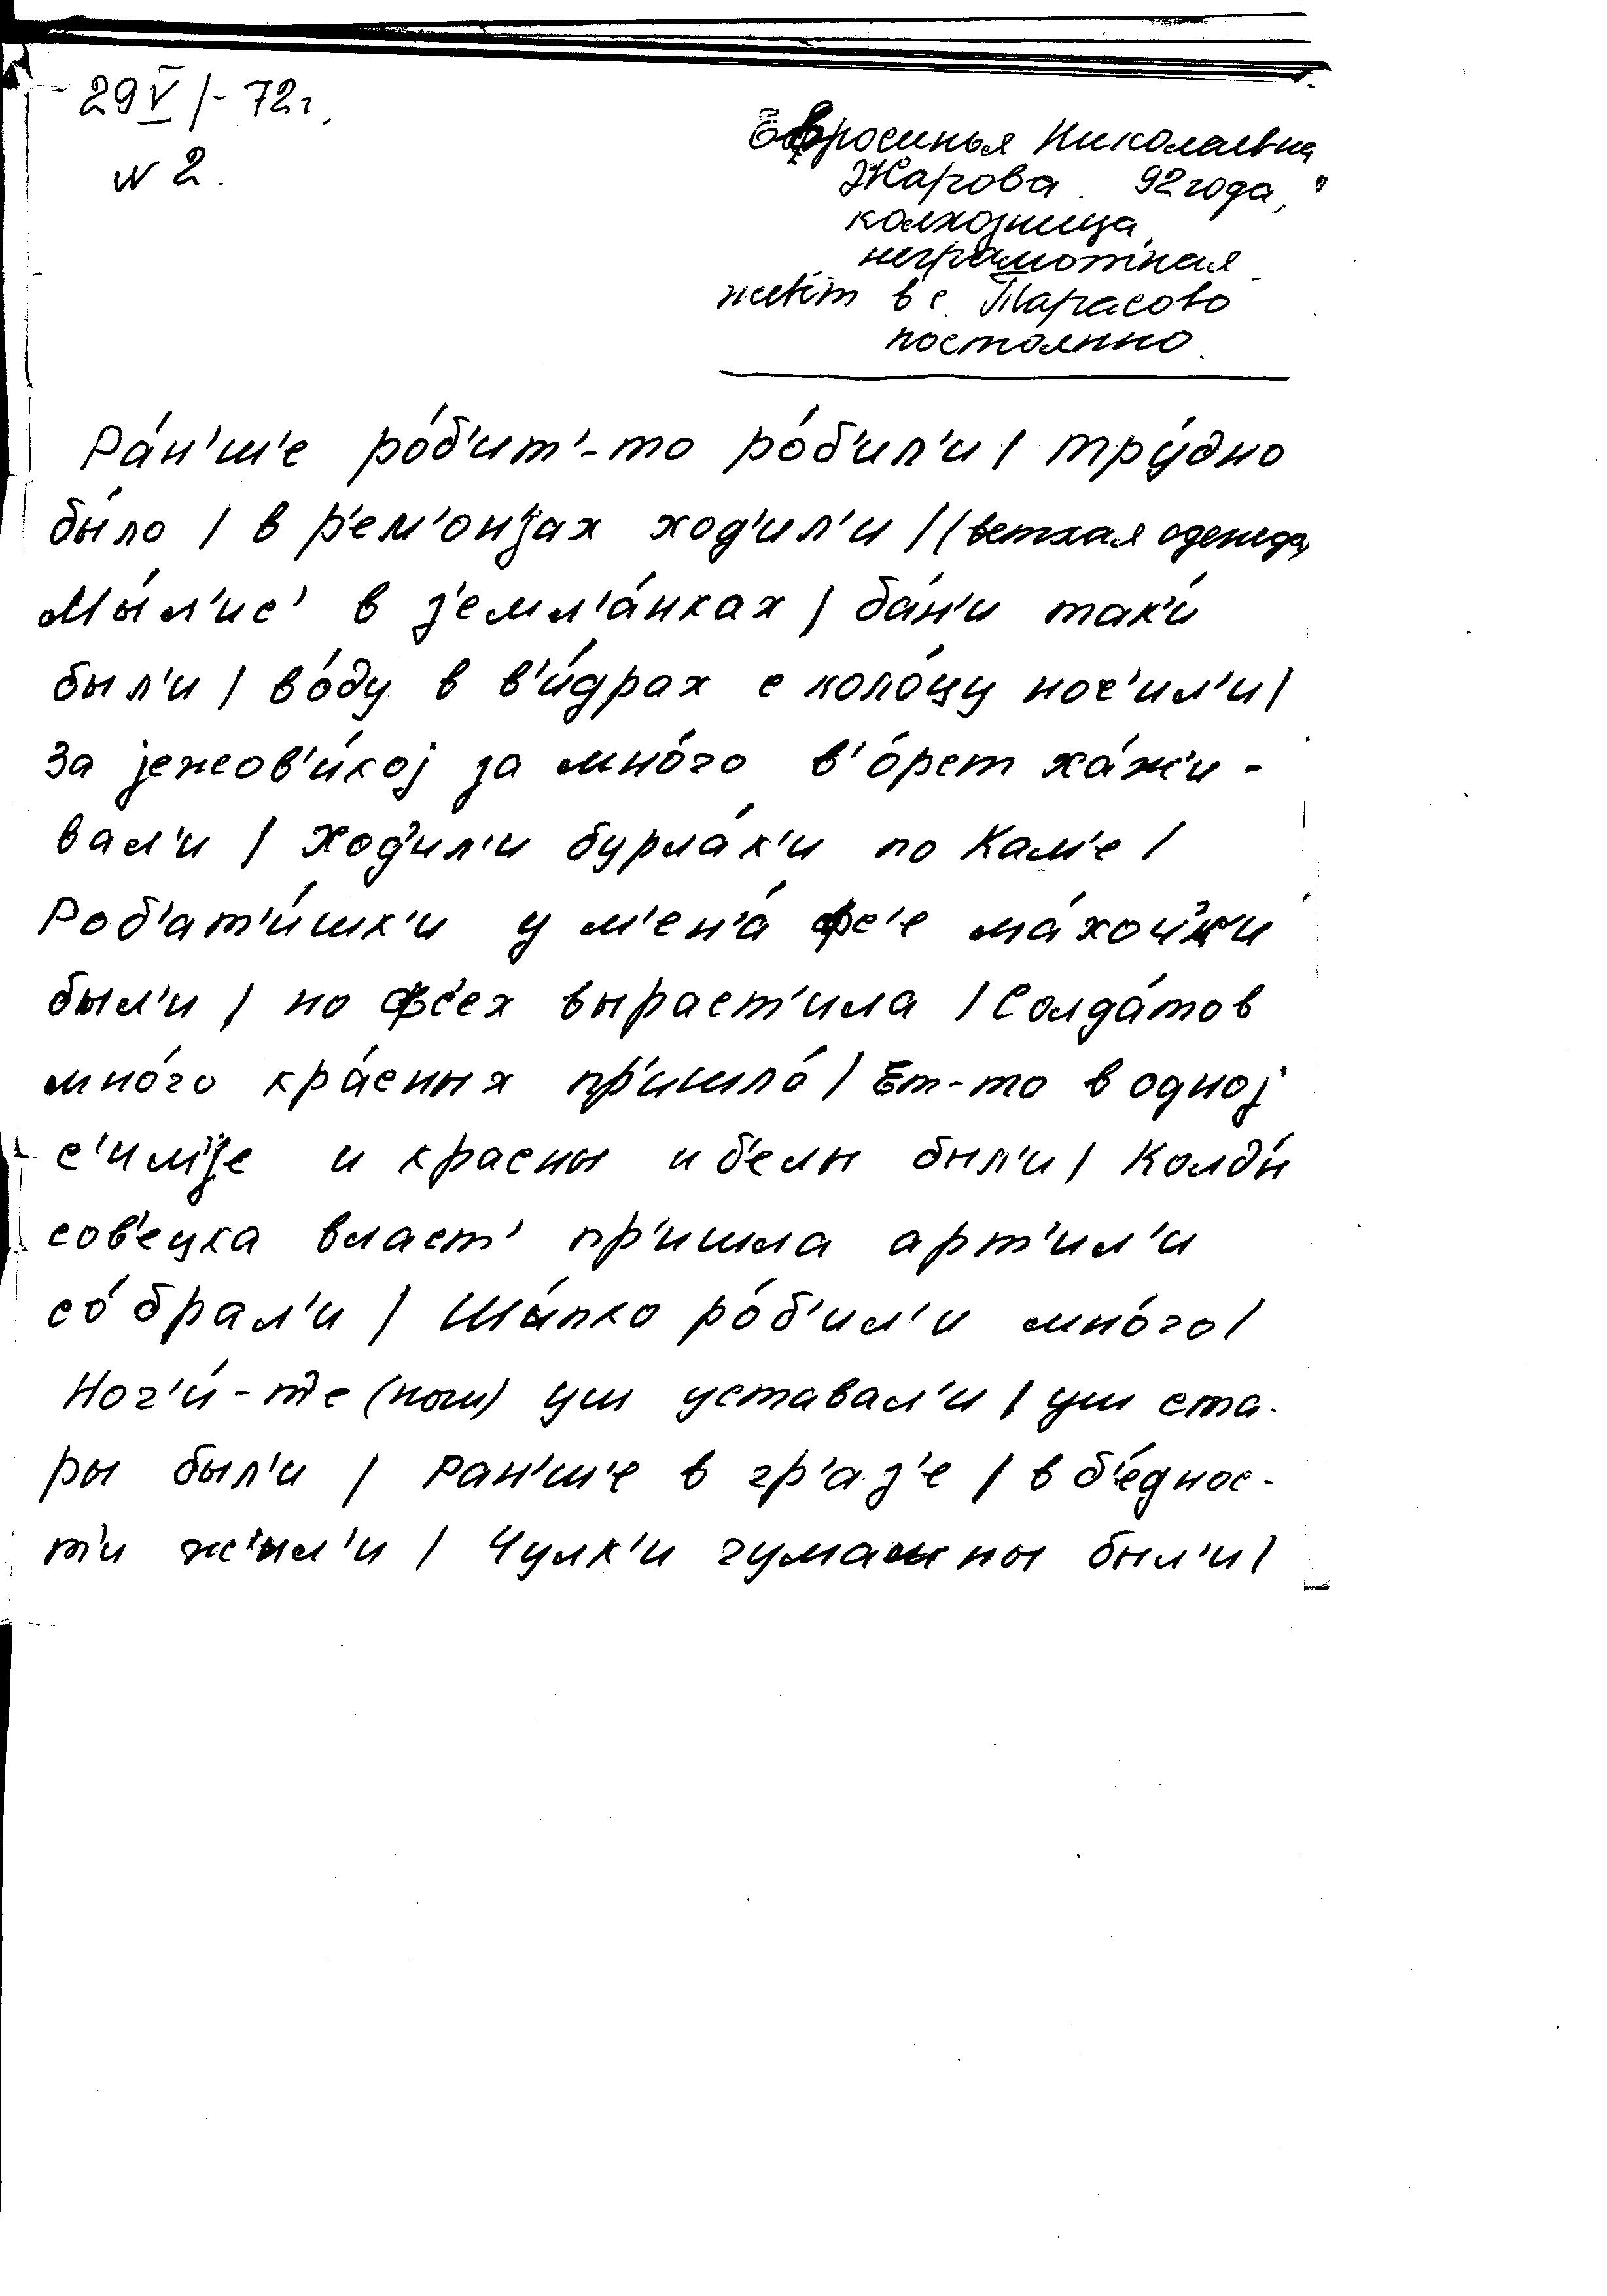 29 V/-72г.
N 2.
Ефросинья Николаевна
Жарова. 92 года,
колхозница,
неграмотная
живёт в с. Тарасово
постоянно.
Ра́н'ш'е ро́б'ит'-то ро́б'ил'и / тру́дно
бы́ло / в р'ем'онjах ход'ил'и / (ветхая одежда)
Мы́л'ис' в з'емл'а́нках / ба́н'и так'и́
был'и / во́ду в в'и́драх с коло́цу нос'ил'и /
За jежов'и́кой за мно́го в'о́рст ха́жи-
вал'и / Ход'ил'и бурла́к'и по Кам'е /
Роб'ат'и́шк'и у м'ен'а́ фс'е ма́хон'к'и
был'и / но фс'ех выраст'ила / Солда́тов
мно́го кра́сных пр'ишло́ / Ет-то в одноj
с'им'jе и красны и б'елы был'и / Колды́
сов'ецка власт' пр'ишла арт'ил'и
со́брал'и / Шы́пко ро́б'ил'и мно́го /
Ног'и́-т'е (ноги) уш уставал'и / уш ста-
ры был'и / Ран'ш'е в гр'аз'е / в б'е́днос-
т'и жыл'и / Чулк'и гумашны был'и /